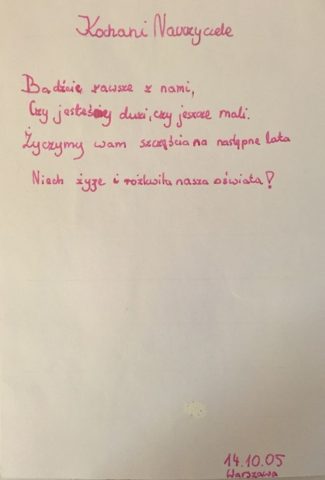 Kochani Nauczyciele
Bądźcie zawsze z nami,
Czy jesteśmy duzi, czy jeszcze mali.
Życzymy wam szczęścia na następne lata
Niech żyje i rozkwita nasza oświata!
14.10.05
Warszawa